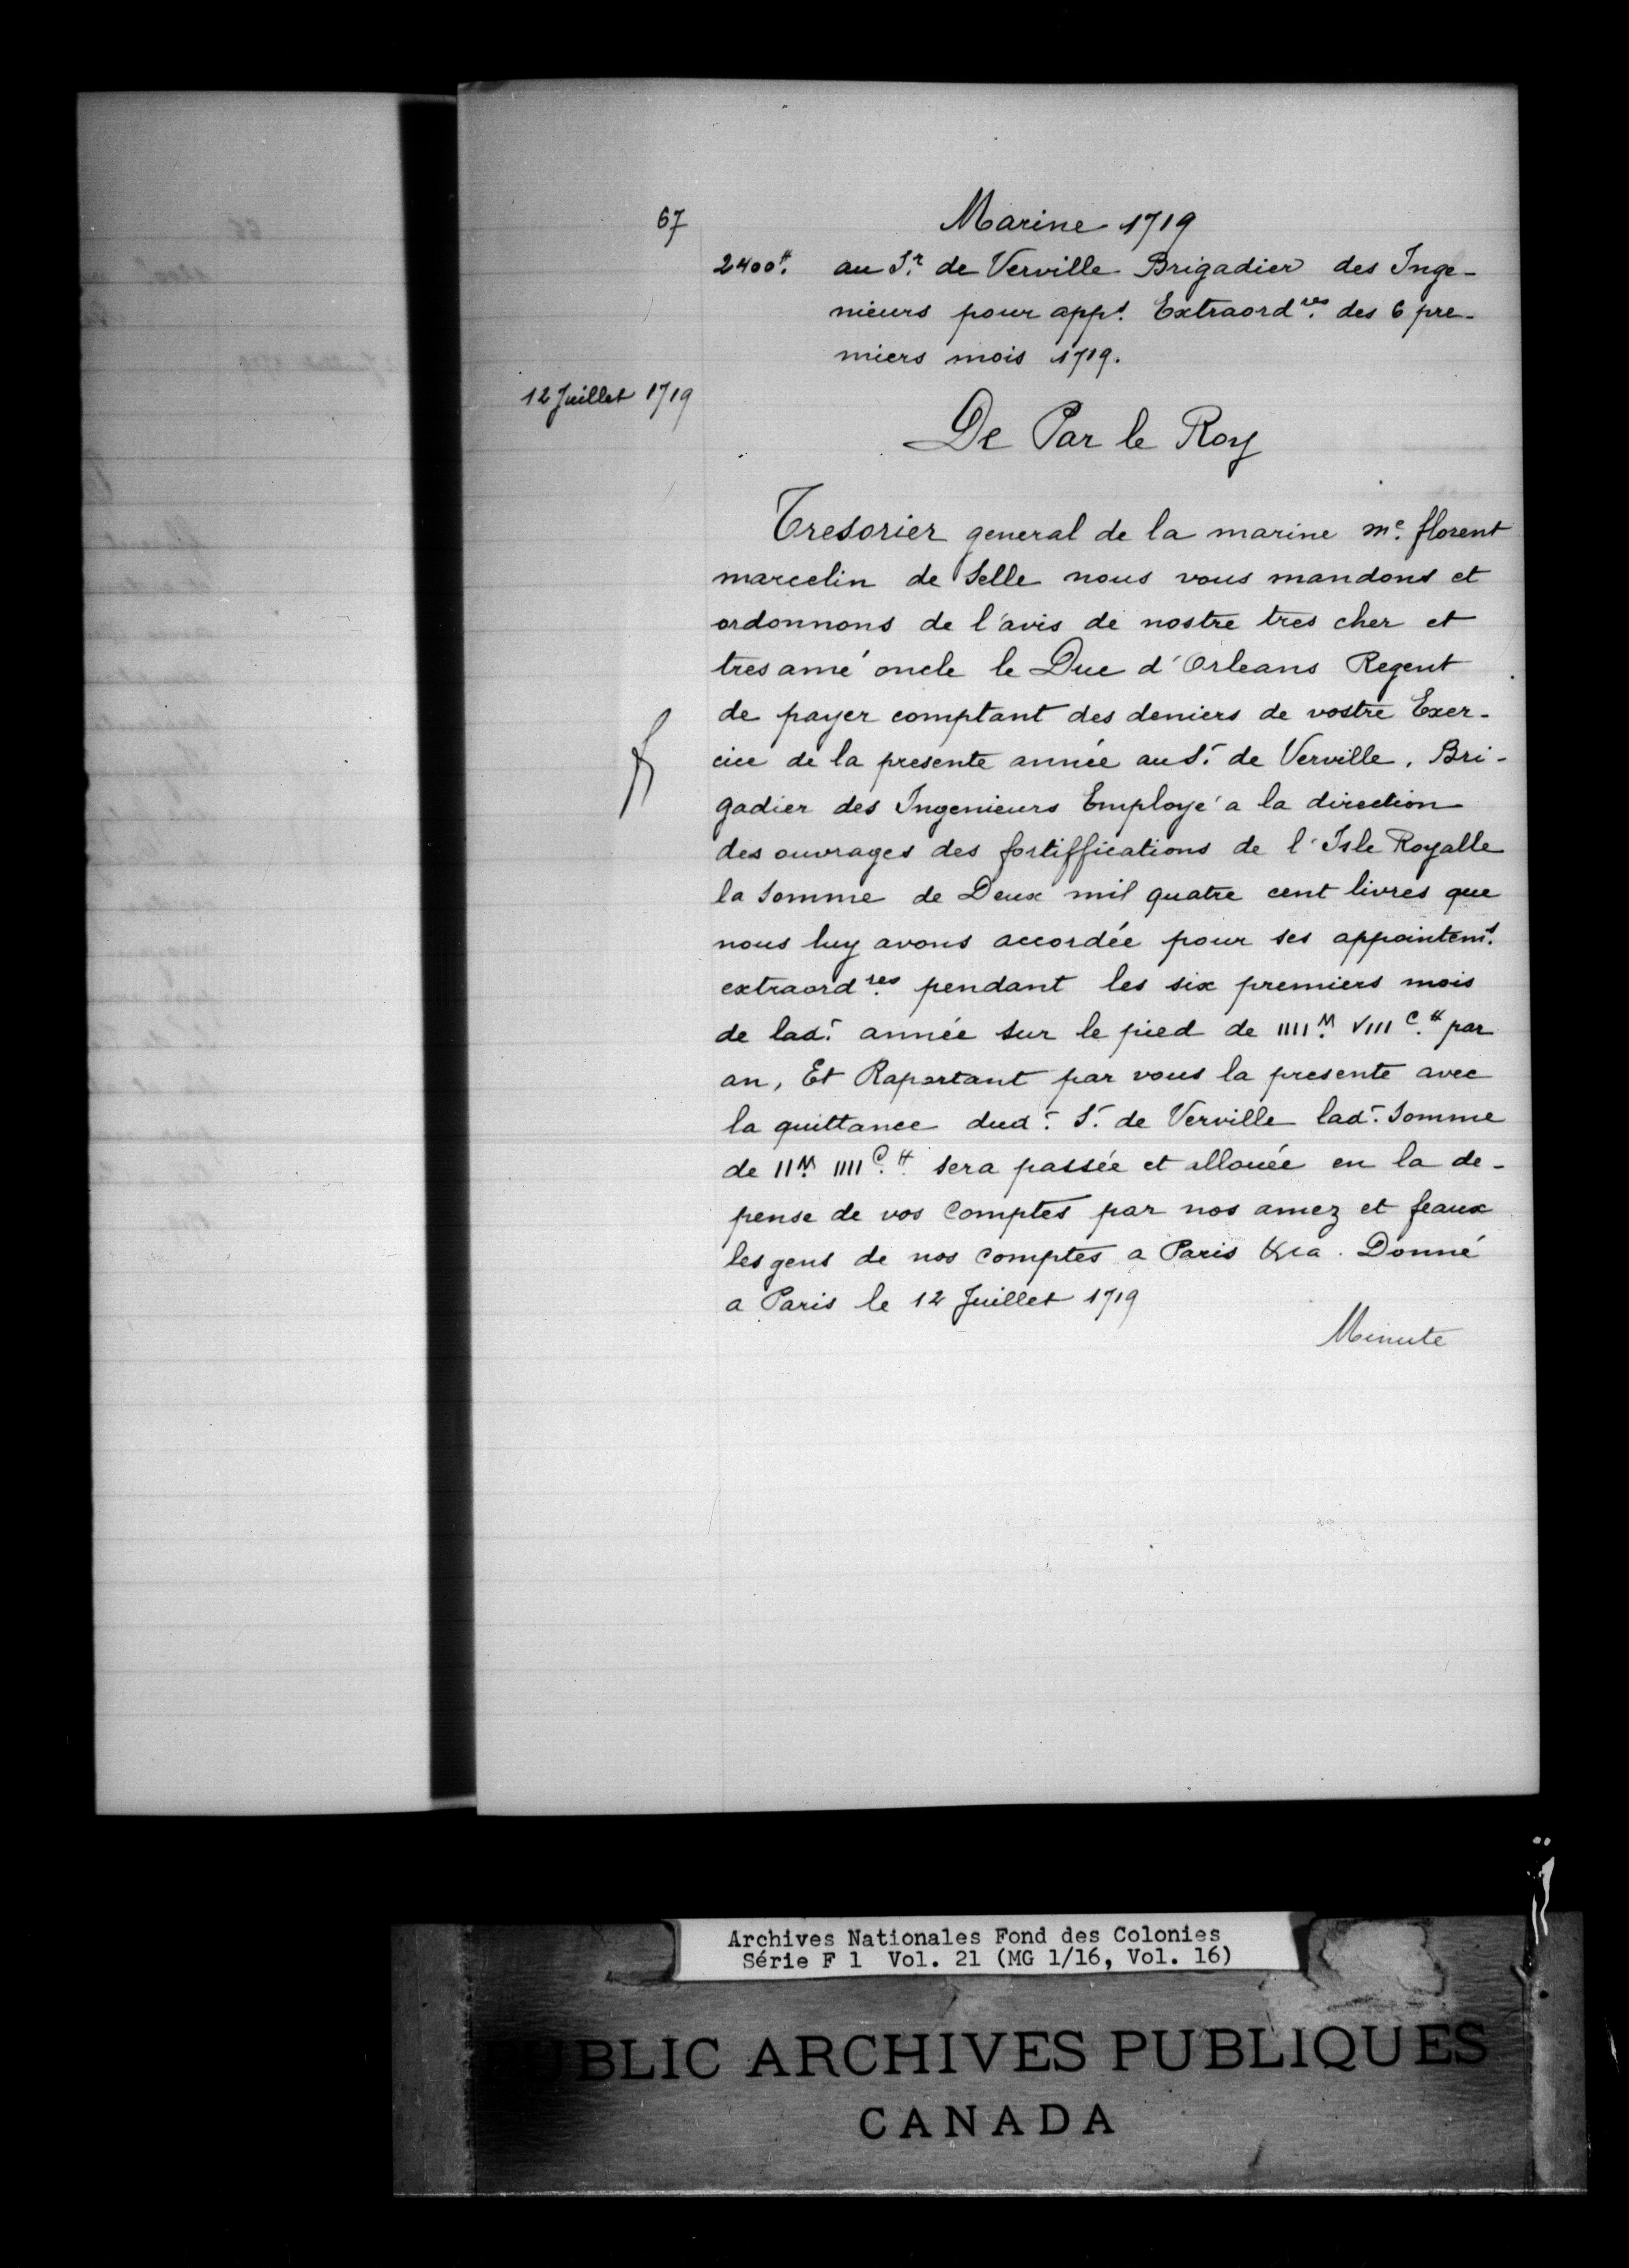 67
Marine 1719
2400ᵗᵗ. au S.ʳ de Verville Brigadier des Inge-
nieurs pour app.ˢ Extraord.ʳᵉˢ des 6 pre-
miers mois 1719.
12 Juillet 1719
De Par le Roy
Tresorier general de la marine m.ᵉ florent
marcelin de Selle nous vous mandons et
ordonnons de l'avis de nostre tres cher et
tres amé oncle le Duc d'Orleans Regent
de payer comptant des deniers de vostre Exer-
cice de la presente année au S.ʳ de Verville, Bri-
gadier des Ingenieurs Employé a la direction
des ouvrages des fortiffications de l'Isle Royalle
la somme de Deux mil quatre cent livres que
nous luy avons accordée pour ses appointem.ˢ
extraord.ʳᵉˢ pendant les six premiers mois
de lad.ᵉ année sur le pied de IIII.ᴹ VIII.ᶜ ᵗᵗ par
an, Et Raportant par vous la presente avec
la quittance dud.ᵗ S.ʳ de Verville lad.ᵉ Somme
de II.ᴹ IIII.ᶜ ᵗᵗ sera passée et allouée en la de-
pense de vos Comptes par nos amez et feaux
les gens de nos comptes a Paris &ca. Donné
a Paris le 12 Juillet 1719
Minute
Archives Nationales Fond des Colonies
Série F 1 Vol. 21 (MG 1/16, Vol. 16)
PUBLIC ARCHIVES PUBLIQUES
CANADA